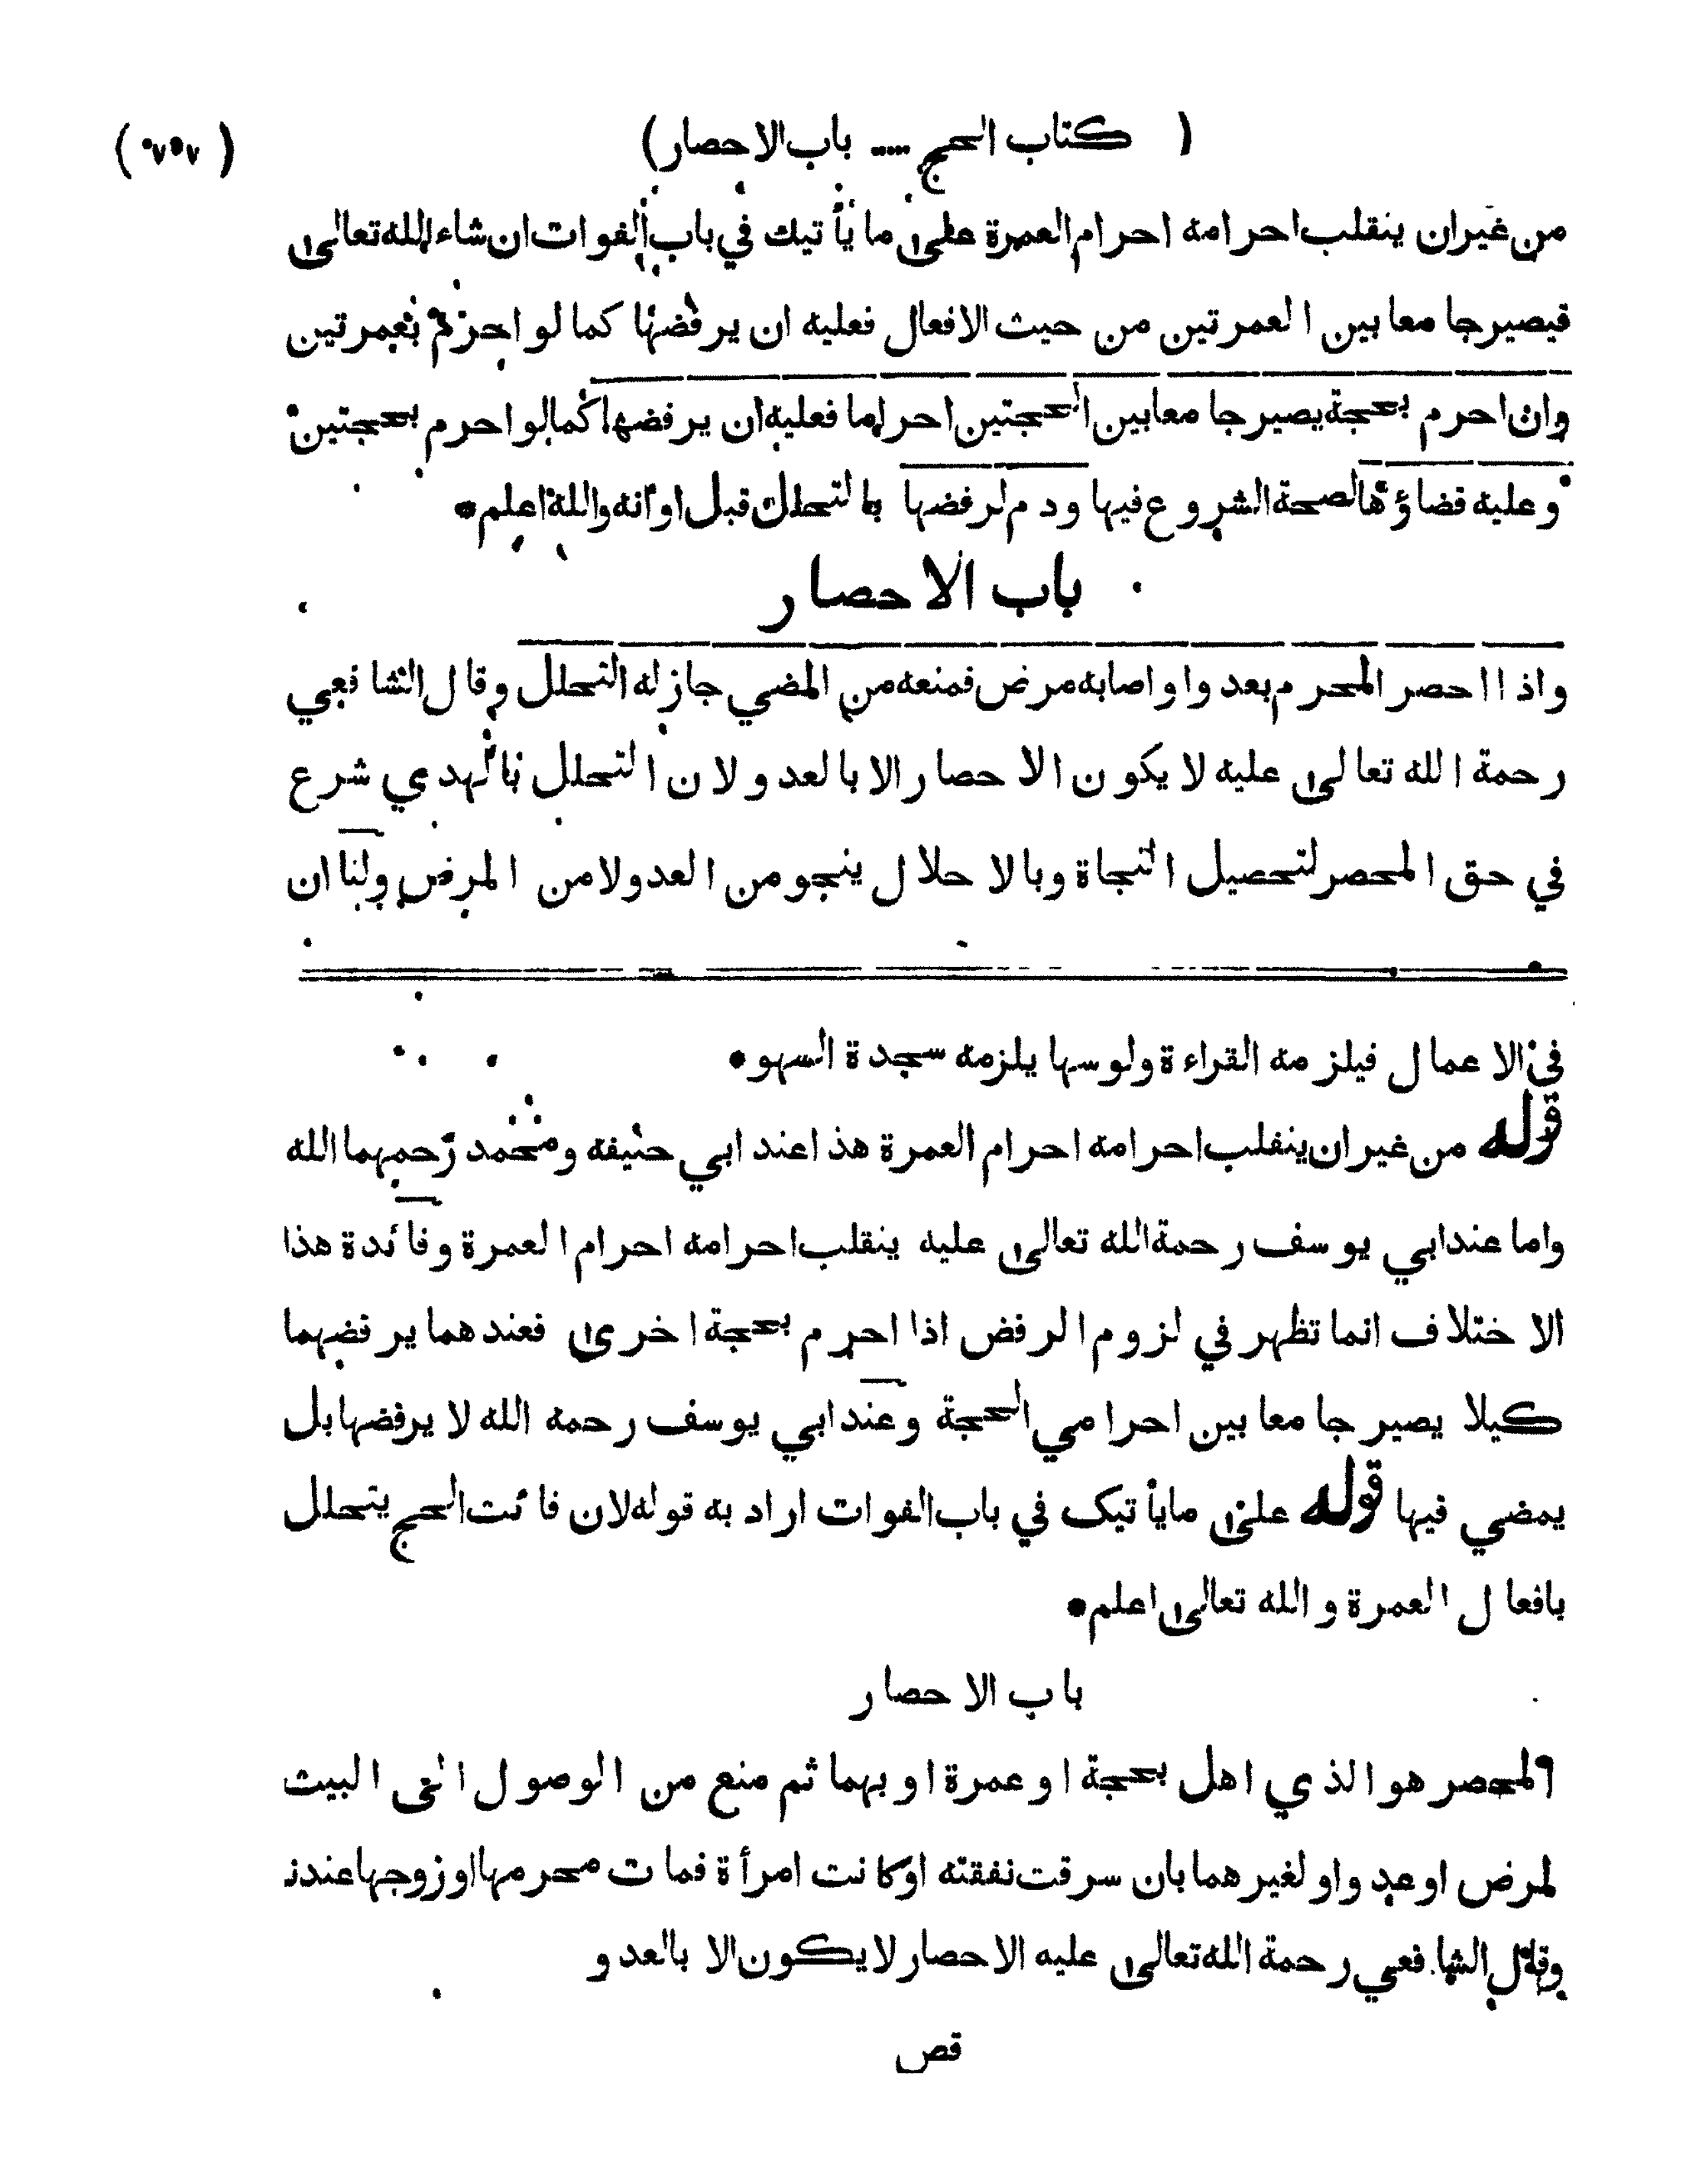 ( كتاب الحج .... باب الاحصار )
( ٧٥٧ )
من غيران ينقلب احرامه احرام العمرة على ما يأتيك في باب الفوات ان شاء الله تعالى
فيصير جامعا بين العمرتين من حيث الافعال فعليه ان يرفضها كما لو احرم بعمرتين
وان احرم بحجة يصير جامعا بين الحجتين احراما فعليه ان يرفضها كما لو احرم بحجتين
وعليه قضاؤها لصحة الشروع فيها ودم لرفضها بالتحلل قبل اوانه والله اعلم •
باب الاحصار
واذا احصر المحرم بعدو او اصابه مرض فمنعه من المضي جاز له التحلل وقال الشافعي
رحمة الله تعالى عليه لا يكون الاحصار الا بالعدو لان التحلل بالهدي شرع
في حق المحصر لتحصيل النجاة وبالاحلال ينجو من العدو لا من المرض ولنا ان
في الاعمال فيلزمه القراءة ولو سها يلزمه سجدة السهو •
قوله من غير ان ينقلب احرامه احرام العمرة هذا عند ابي حنيفه ومحمد رحمهما الله
واما عند ابي يوسف رحمة الله تعالى عليه ينقلب احرامه احرام العمرة وفائدة هذا
الاختلاف انما تظهر في لزوم الرفض اذا احرم بحجة اخرى فعندهما يرفضهما
كيلا يصير جامعا بين احرامي الحجة وعند ابي يوسف رحمه الله لا يرفضها بل
يمضي فيها قوله على ما يأتيك في باب الفوات اراد به قوله لان فائت الحج يتحلل
بافعال العمرة والله تعالى اعلم •
باب الاحصار
المحصر هو الذي اهل بحجة او عمرة او بهما ثم منع من الوصول الى البيت
لمرض او عدو او لغيرهما بان سرقت نفقته او كانت امرأة فمات محرمها او زوجها عندنا
وقال الشافعي رحمة الله تعالى عليه الاحصار لا يكون الا بالعدو
قص